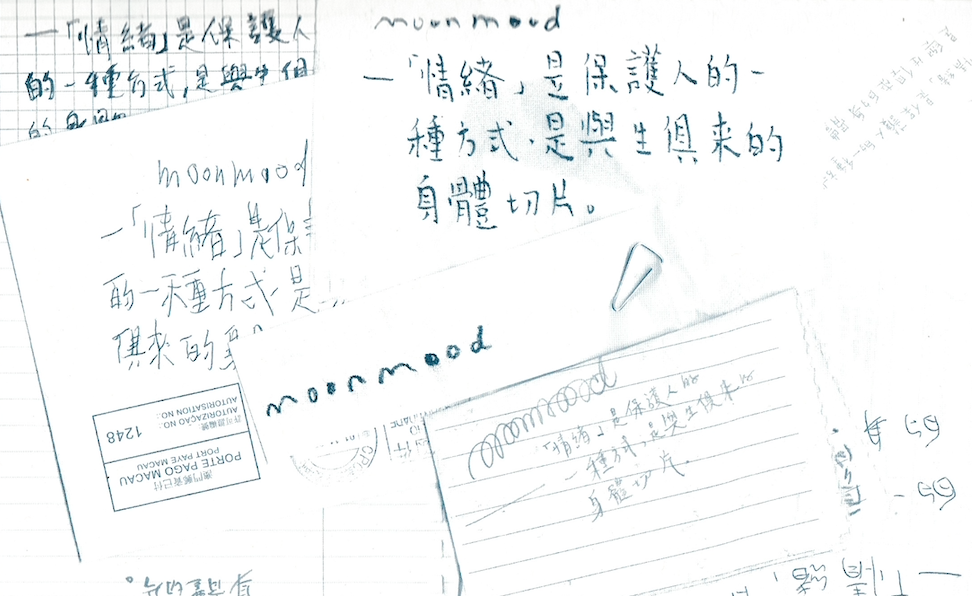 一「情緒」是保護人
的一種方式,是與生俱
moonmood
一「情緒」是保護人的一
種方式,是與生俱來的
身體切片。
moonmood
一「情緒」是保
的一種方式,是
俱來的
moonmood
moonmood
「情緒」是保護人的
一種方式,是與生俱來的
身體切片.
澳門郵資已付
PORT PAYE MACAU
PORTE PAGO MACAU
許可證編號
AUTORIZAÇÃO NO.:
AUTORISATION NO.:
1248
身體切片。